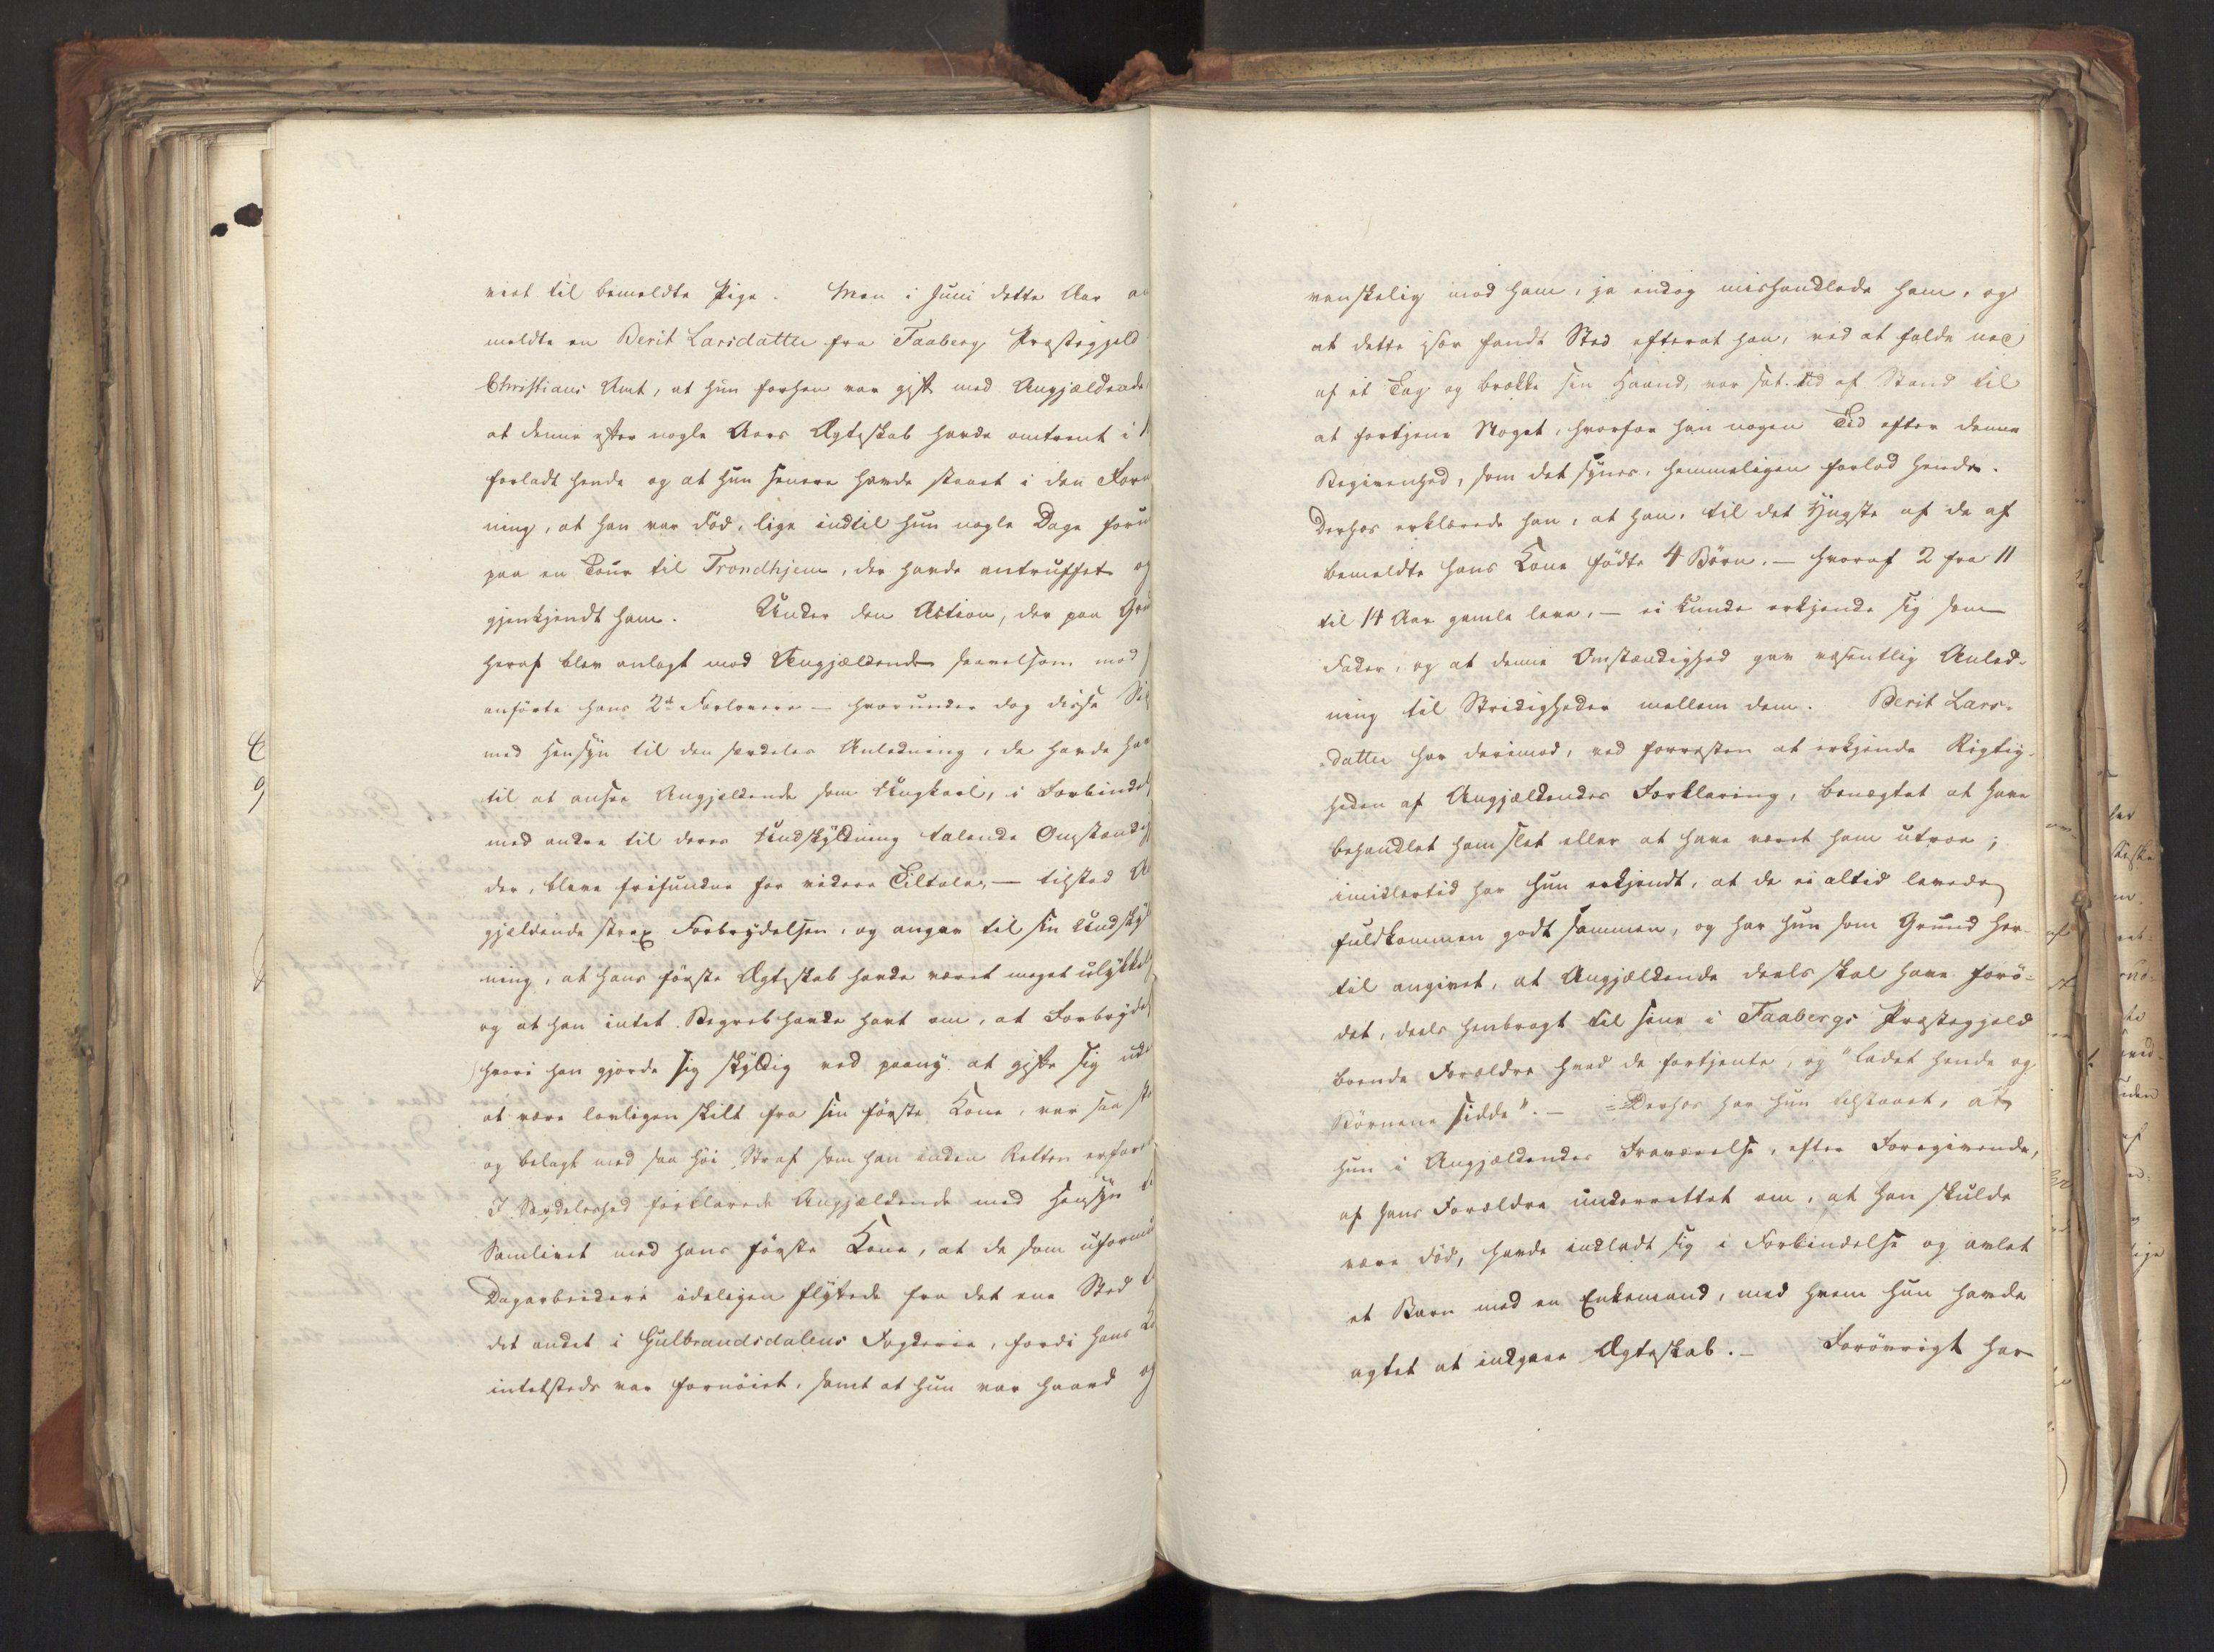 viet til bemeldte Pige. Men i Juni dette Aar an
meldte en Berit Larsdatter fra Faaberg Præstegjeld
Christians Amt, at hun forhen var gift med Angjældende
at denne efter nogle Aars Ægteskab havde omtrent i 1
forladt hende og at hun senere havde staaet i den Form
ning, at han var død, lige indtil hun nogle Dage foru
paa en Tour til Trondhjem, der havde antruffet og
gjenkjendt ham. Under den Action, der paa Gru
heraf blev anlagt med Angjældende saavelsom mod
anførte hans 2de Forlovere – hvorunder dog disse Si
med Hensyn til den særdeles Anledning, de havde hav
til at ansee Angjeldende som Ungkarl, i Forbindel
med andre til deres Undskyldning talende Omstændig
der, bleve frifundne for videre Tiltale, – tilstod An
gjældende strax Forbrydelsen, og angav til sin Undskyl
ning, at hans første Ægteskab havde været meget ulykkel
og at han intet Begreb havde havt om, at Forbrydel
hvori han gjorde sig skyldig ved paany at gifte sig ude
at være lovligen skilt fra sin første Kone, var saa sto
og belagt med saa høi Straf som han inden Retten erfared
I Særdeleshed forklarede Angjældende med Hensyn ti
Samlivet med hans første Kone, at de som uformu
Dagarbeidere ideligen flyttede fra det ene Sted ti
det andet i Gulbrandsdalens Fogderie, fordi hans Ko
intetsteds var fornøiet, samt at hun var haard og
vanskelig mod ham, ja endog mishandlede ham, og
at dette især fandt Sted efterat han, ved at falde ned
af et Tag og brække sin Haand, var sat ud af Stand til
at fortjene Noget, hvorfor han nogen Tid efter denne
Begivenhed, som det synes, hemmeligen forlod hende.
Derhos erklærede han, at han, til det Yngste af de af
bemeldte hans Kone fødte 4 Børn, – hvoraf 2 fra 11
til 14 Aar gamle leve, – ei kunde erkjende sig som
Fader, og at denne Omstændighed gav væsentlig Anled-
ning til Stridigheder mellem dem. Berit Lars-
datter har derimod, ved forresten at erkjende Rigtig-
heden af Angjældendes Forklaring, benægtet at have
behandlet ham slet eller at have været ham utroe;
imidlertid har hun erkjendt, at de ei altid levede
fuldkommen godt sammen, og har hun som Grund her-
til angivet, at Angjældende deels skal have forø-
det, deels henbragt til sine i Faabergs Præstegjeld
boende Forældre hvad de fortjente, og "ladet hende og
Børnene sidde". – Derhos har hun tilstaaet, at
hun i Angjældendes Fraværelse, efter Foregivende,
af hans Forældre underrettet om, at han skulde
være død, havde indladt sig i Forbindelse og avlet
et Barn med en Enkemand, med hvem hun havde
agtet at indgaae Ægteskab. – Forøvrigt har